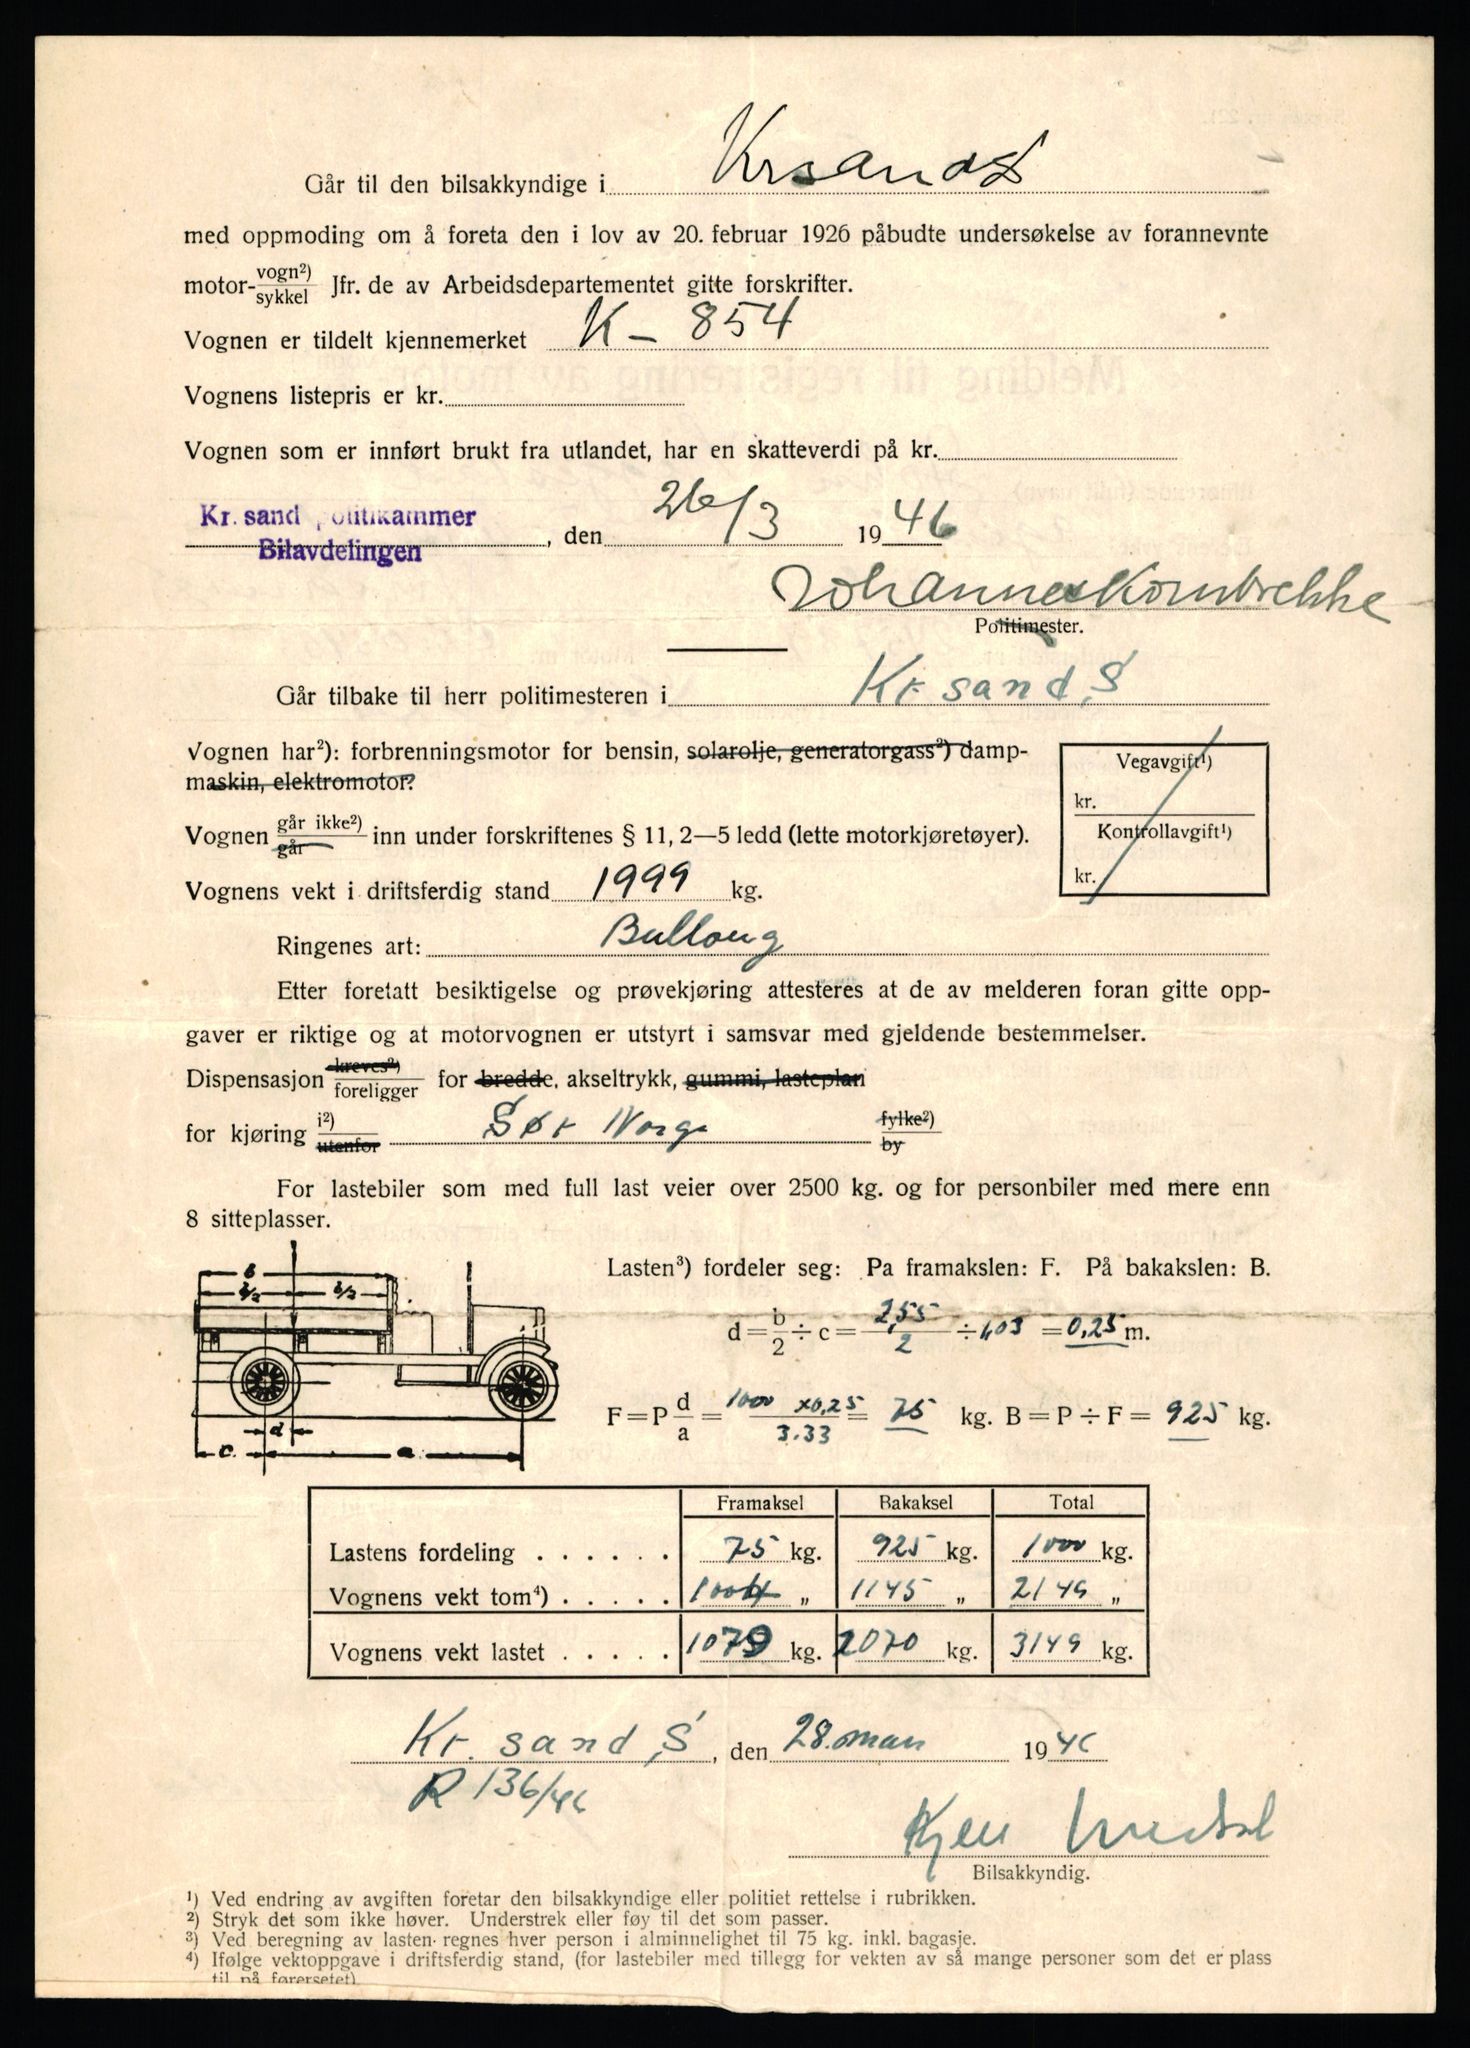 Går til den bilsakkyndige i Krsand S
med oppmoding om å foreta den i lov av 20. februar 1926 påbudte undersøkelse av forannevnte
motor- vogn²) / sykkel Jfr. de av Arbeidsdepartementet gitte forskrifter.
Vognen er tildelt kjennemerket K - 854
Vognens listepris er kr.
Vognen som er innført brukt fra utlandet, har en skatteverdi på kr.
Kr.sand politikammer
Bilavdelingen, den 26/3 1946
Johannes Kornbrekke
Politimester.
Går tilbake til herr politimesteren i Kr.sand S
Vognen har²): forbrenningsmotor for bensin, solarolje, generatorgass²) damp-
maskin, elektromotor?
Vegavgift¹)
kr.
Kontrollavgift¹)
kr.
Vognen går ikke²) / går inn under forskriftenes § 11, 2—5 ledd (lette motorkjøretøyer).
Vognens vekt i driftsferdig stand 1999 kg.
Ringenes art: Ballong
Etter foretatt besiktigelse og prøvekjøring attesteres at de av melderen foran gitte opp-
gaver er riktige og at motorvognen er utstyrt i samsvar med gjeldende bestemmelser.
Dispensasjon kreves²) / foreligger for bredde, akseltrykk, gummi, lasteplan
for kjøring i²) / utenfor Sør Norge fylke²) / by
For lastebiler som med full last veier over 2500 kg. og for personbiler med mere enn
8 sitteplasser.
Lasten³) fordeler seg: Pa framakslen: F. På bakakslen: B.
b
b/2 b/2
d = b/2 ÷ c = 2,55/2 ÷ 1,03 = 0,25 m.
F = P d/a = 1000 x 0,25 / 3.33 = 75 kg. B = P ÷ F = 925 kg.
d
c. a
Framaksel Bakaksel Total
Lastens fordeling . . . . . . 75 kg. 925 kg. 1000 kg.
Vognens vekt tom⁴) . . . . . 1004 „ 1145 „ 2149 „
Vognens vekt lastet . . . . . 1079 kg. 2070 kg. 3149 kg.
Kr. sand S, den 28. mars 1946
R 136/46
Kjell
Bilsakkyndig.
¹) Ved endring av avgiften foretar den bilsakkyndige eller politiet rettelse i rubrikken.
²) Stryk det som ikke høver. Understrek eller føy til det som passer.
³) Ved beregning av lasten regnes hver person i alminnelighet til 75 kg. inkl. bagasje.
⁴) Ifølge vektoppgave i driftsferdig stand, (for lastebiler med tillegg for vekten av så mange personer som det er plass
til på førersetet)